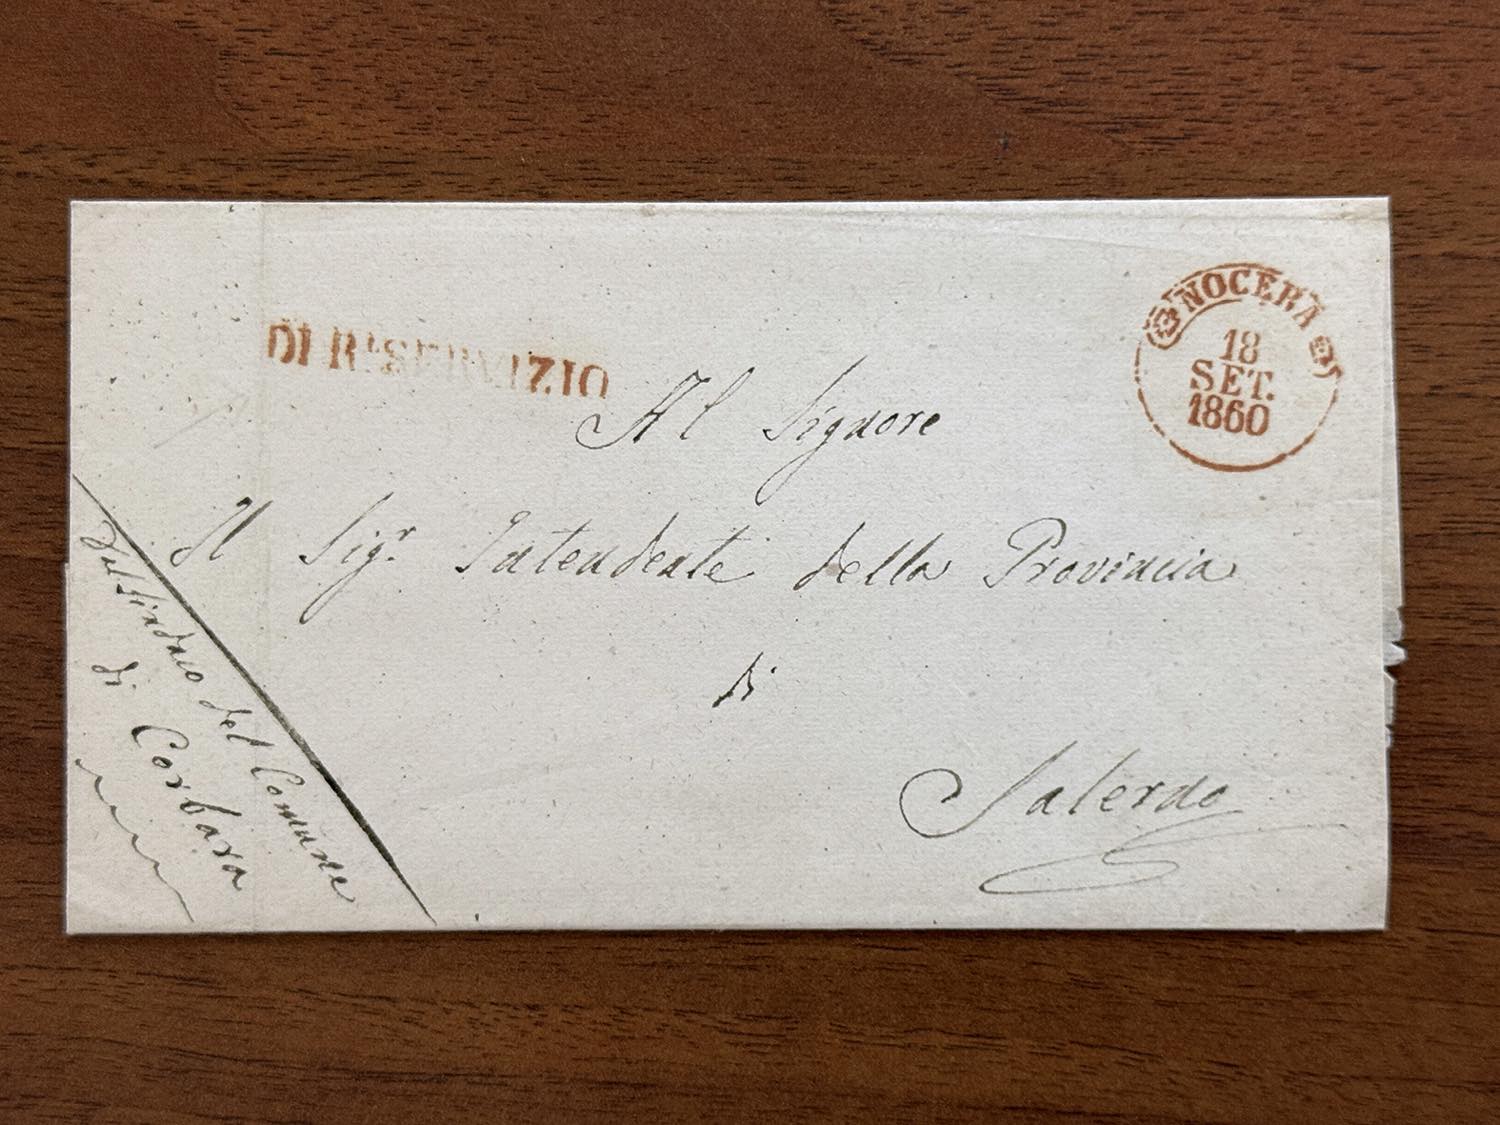 NOCERA
18
SET.
1860
DI R. SERVIZIO
Al Signore
Il Sigr Intendente della Provincia
di
Salerno
Dal Sindaco del Comune
di Corbara